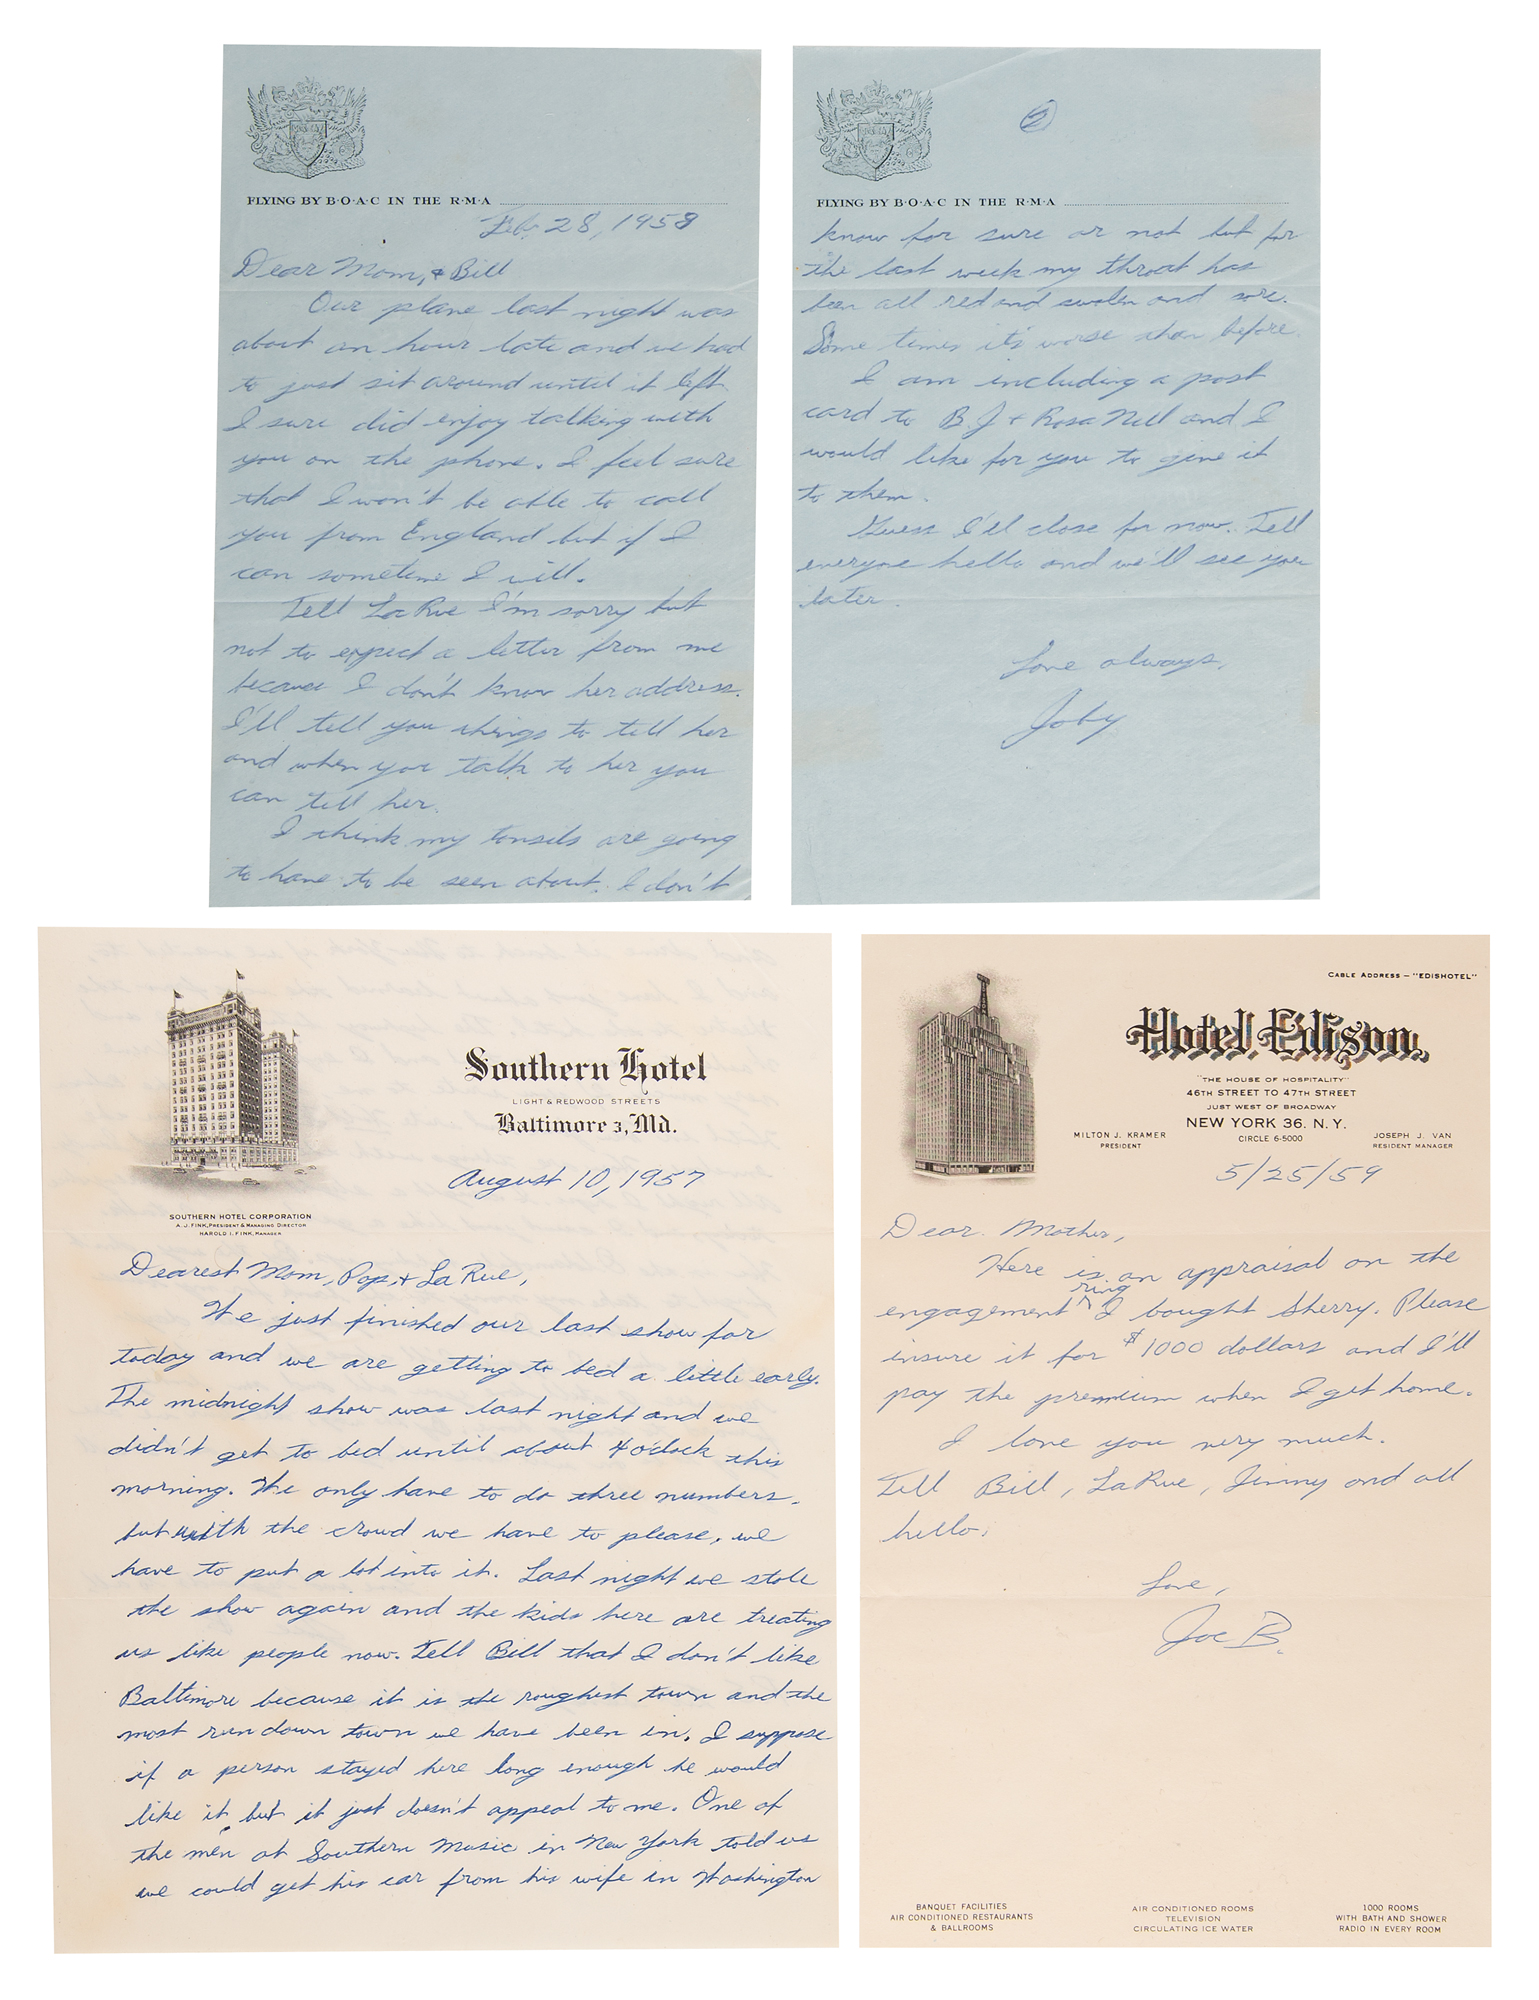 FLYING BY B·O·A·C IN THE R·M·A
Feb. 28, 1958
Dear Mom, & Bill
Our plane last night was
about an hour late and we had
to just sit around until it left.
I sure did enjoy talking with
you on the phone. I feel sure
that I won't be able to call
you from England but if I
can sometime I will.
Tell La Rue I'm sorry but
not to expect a letter from me
because I don't know her address.
I'll tell you things to tell her
and when you talk to her you
can tell her.
I think my tonsils are going
to have to be seen about. I don't
2
FLYING BY B·O·A·C IN THE R·M·A
know for sure or not but for
the last week my throat has
been all red and swolen and sore.
Some times it's worse than before.
I am including a post
card to B.J + Rosa Nell and I
would like for you to give it
to them.
Guess I'll close for now. Tell
everyone hello and we'll see you
later.
Love always,
Joby
Southern Hotel
LIGHT & REDWOOD STREETS
Baltimore 3, Md.
August 10, 1957
SOUTHERN HOTEL CORPORATION
A. J. FINK, PRESIDENT & MANAGING DIRECTOR
HAROLD I. FINK, MANAGER
Dearest Mom, Pop, + La Rue,
We just finished our last show for
today and we are getting to bed a little early.
The midnight show was last night and we
didn't get to bed until about 4 o'clock this
morning. We only have to do three numbers,
but with the crowd we have to please, we
have to put a lot into it. Last night we stole
the show again and the kids here are treating
us like people now. Tell Bill that I don't like
Baltimore because it is the roughest town and the
most run down town we have been in. I suppose
if a person stayed here long enough he would
like it, but it just doesn't appeal to me. One of
the men at Southern Music in New York told us
we could get his car from his wife in Washington
CABLE ADDRESS — "EDISHOTEL"
Hotel Edison
"THE HOUSE OF HOSPITALITY"
46TH STREET TO 47TH STREET
JUST WEST OF BROADWAY
NEW YORK 36. N. Y.
CIRCLE 6-5000
MILTON J. KRAMER
PRESIDENT
JOSEPH J. VAN
RESIDENT MANAGER
5/25/59
Dear Mother,
Here is an appraisal on the
engagement ring I bought Sherry. Please
insure it for $1000 dollars and I'll
pay the premium when I get home.
I love you very much.
Tell Bill, La Rue, Jimmy and all
hello.
Love,
Joe B.
BANQUET FACILITIES
AIR CONDITIONED RESTAURANTS
& BALLROOMS
AIR CONDITIONED ROOMS
TELEVISION
CIRCULATING ICE WATER
1000 ROOMS
WITH BATH AND SHOWER
RADIO IN EVERY ROOM